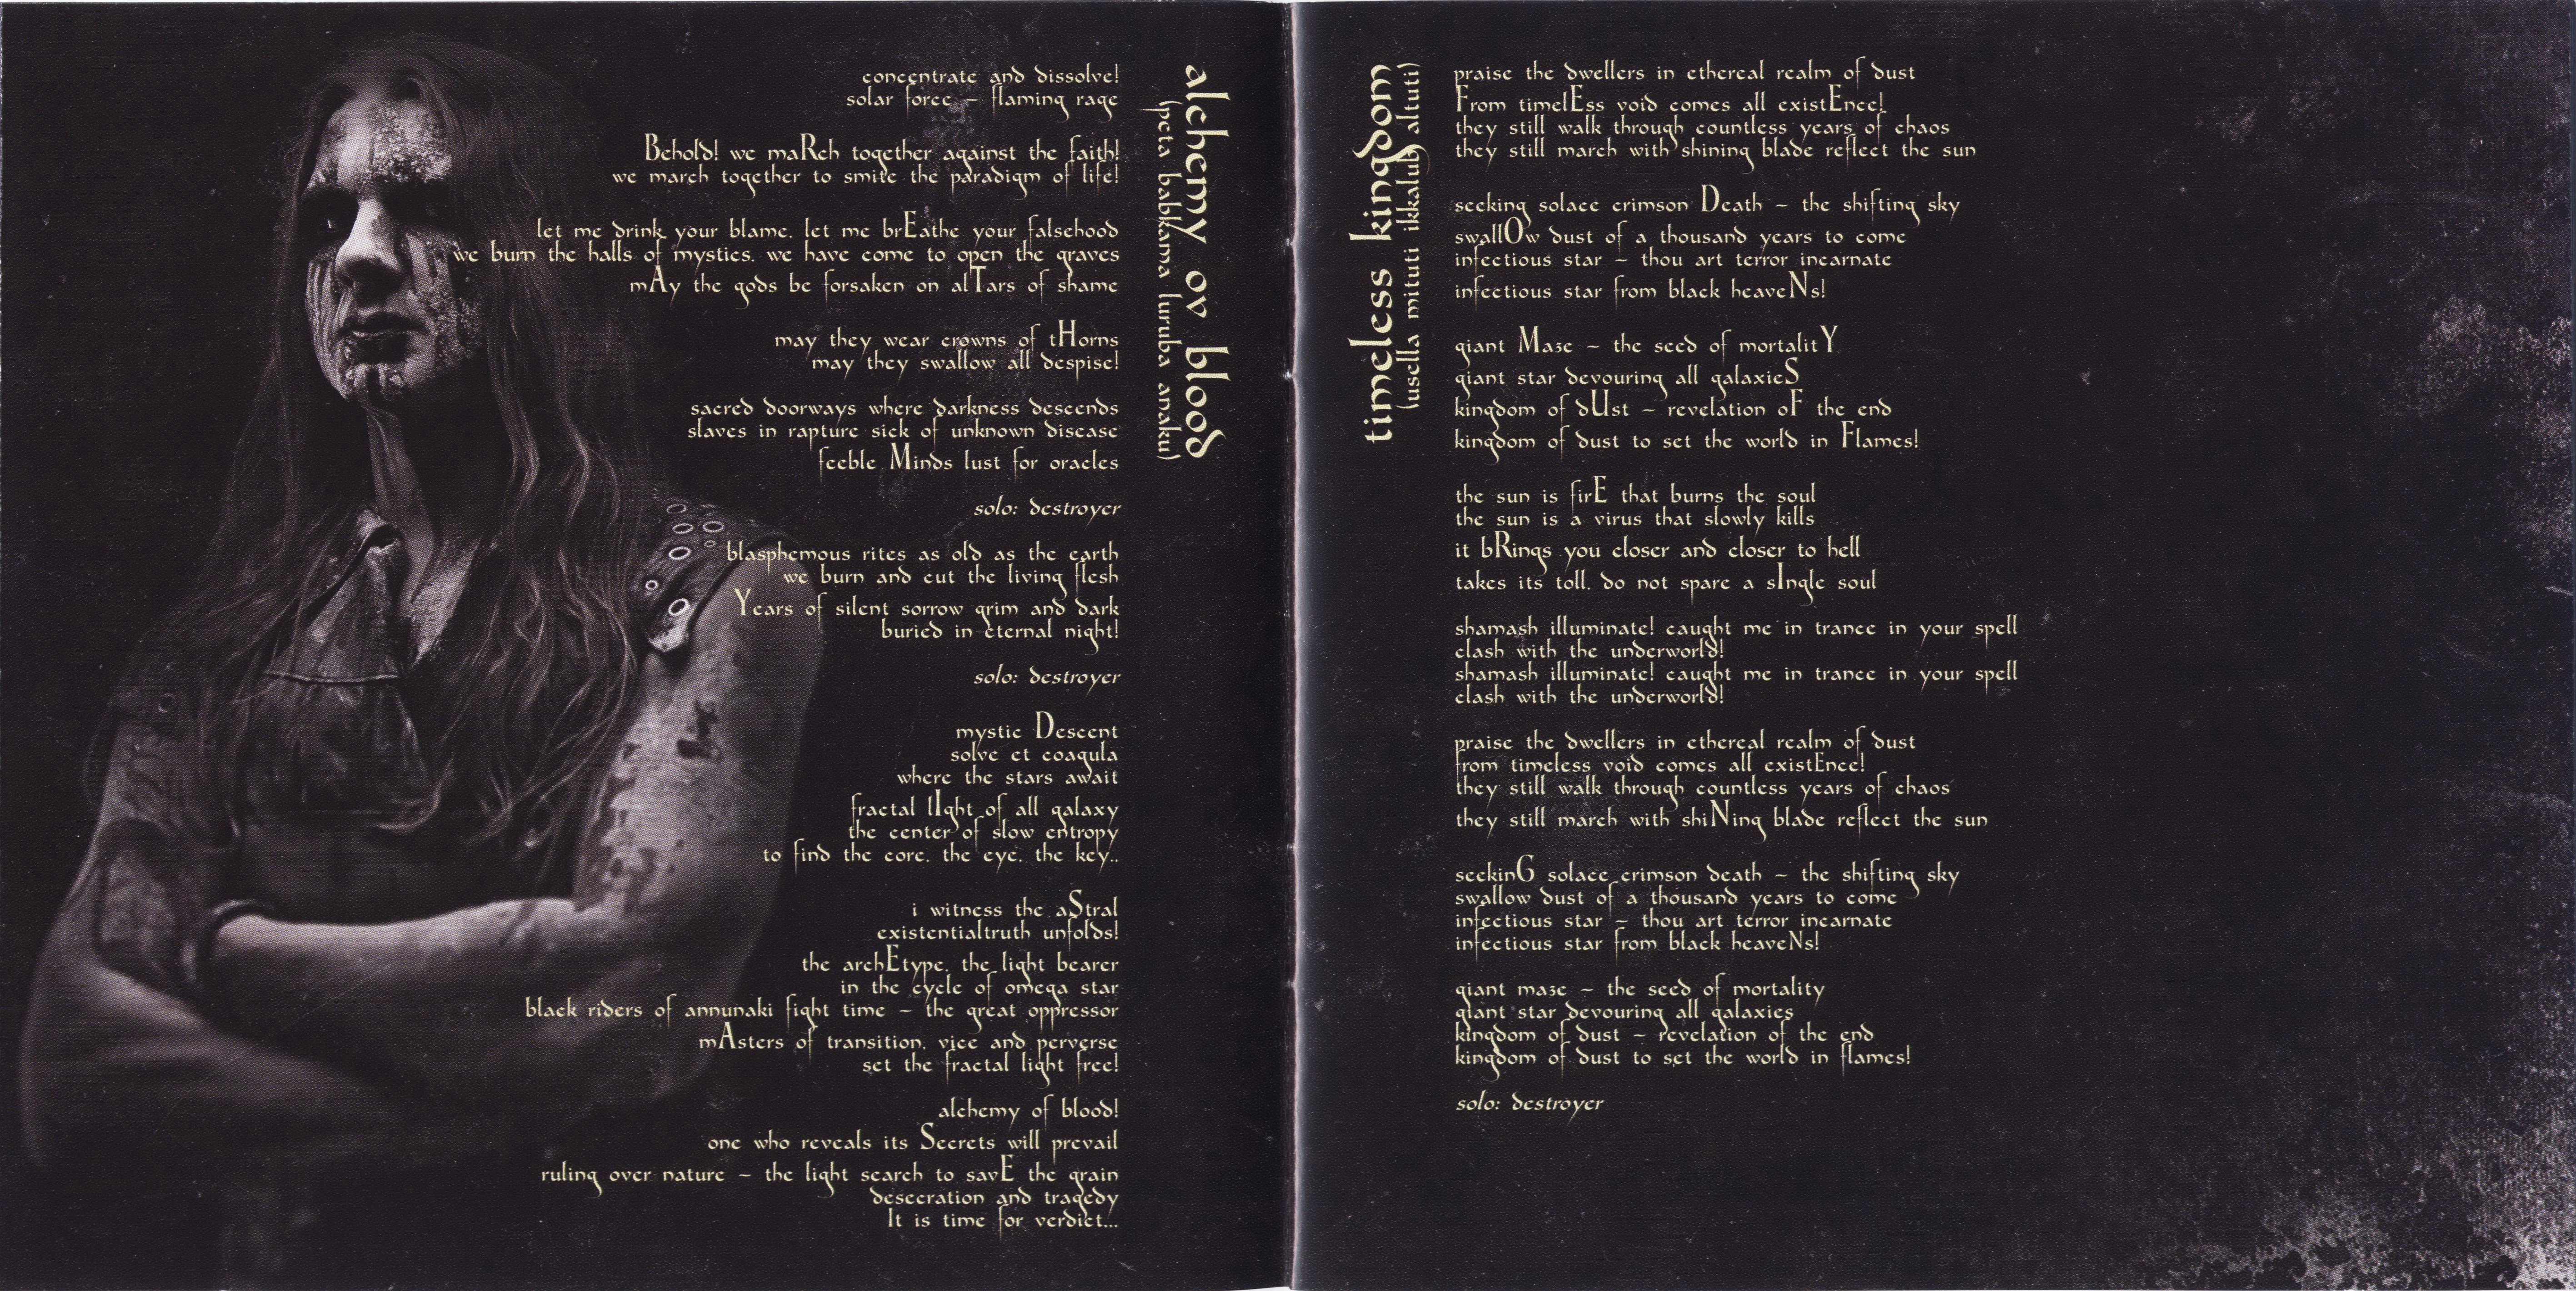 alchemy ov blood
(peta babkama luruba anaku)
concentrate and dissolve!
solar force – flaming rage
Behold! we maRch together against the faith!
we march together to smite the paradigm of life!
let me drink your blame. let me brEathe your falsehood
we burn the halls of mystics. we have come to open the graves
mAy the gods be forsaken on alTars of shame
may they wear crowns of tHorns
may they swallow all despise!
sacred doorways where darkness descends
slaves in rapture sick of unknown disease
feeble Minds lust for oracles
solo: destroyer
blasphemous rites as old as the earth
we burn and cut the living flesh
Years of silent sorrow grim and dark
buried in eternal night!
solo: destroyer
mystic Descent
solve et coagula
where the stars await
fractal lIght of all galaxy
the center of slow entropy
to find the core. the eye. the key..
i witness the aStral
existentialtruth unfolds!
the archEtype. the light bearer
in the cycle of omega star
black riders of annunaki fight time – the great oppressor
mAsters of transition. vice and perverse
set the fractal light free!
alchemy of blood!
one who reveals its Secrets will prevail
ruling over nature – the light search to savE the grain
desecration and tragedy
It is time for verdict...
timeless kingdom
(usella mituti ikkalub altuti)
praise the dwellers in ethereal realm of dust
From timelEss void comes all existEnce!
they still walk through countless years of chaos
they still march with shining blade reflect the sun
seeking solace crimson Death – the shifting sky
swallOw dust of a thousand years to come
infectious star – thou art terror incarnate
infectious star from black heaveNs!
giant Maze – the seed of mortalitY
giant star devouring all galaxieS
kingdom of dUst – revelation oF the end
kingdom of dust to set the world in Flames!
the sun is firE that burns the soul
the sun is a virus that slowly kills
it bRings you closer and closer to hell
takes its toll. do not spare a sIngle soul
shamash illuminate! caught me in trance in your spell
clash with the underworld!
shamash illuminate! caught me in trance in your spell
clash with the underworld!
praise the dwellers in ethereal realm of dust
from timeless void comes all existEnce!
they still walk through countless years of chaos
they still march with shiNing blade reflect the sun
seekinG solace crimson death – the shifting sky
swallow dust of a thousand years to come
infectious star – thou art terror incarnate
infectious star from black heaveNs!
giant maze – the seed of mortality
giant star devouring all galaxies
kingdom of dust – revelation of the end
kingdom of dust to set the world in flames!
solo: destroyer